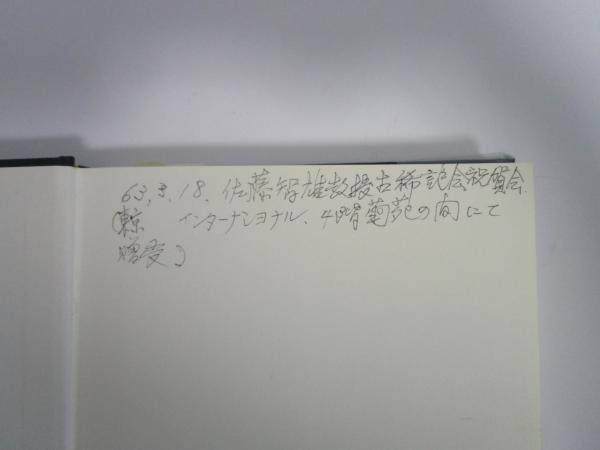 63.3.18. 佐藤智雄教授古稀記念祝賀会、
(東京 インターナショナル、4階菊苑の間にて
贈受)